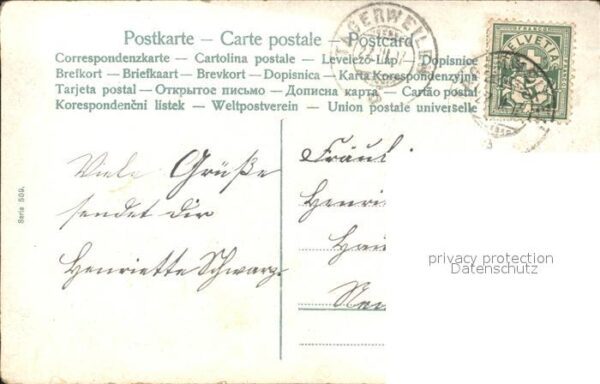 Postkarte – Carte postale – Postcard
Correspondenzkarte – Cartolina postale – Levelező-Lap – Dopisnice
Brefkort – Briefkaart – Brevkort – Dopisnica – Karta Korespondencyjna
Tarjeta postal – Открытое письмо – Дописна карта – Cartão postal
Korespondenční listek – Weltpostverein – Union postale universelle
TÄGERWEILEN
FRANCO
HELVETIA
Serie 509.
Viele Grüße
sendet dir
Henriette Schwarz.
Fräul
Henri
privacy protection
Datenschutz